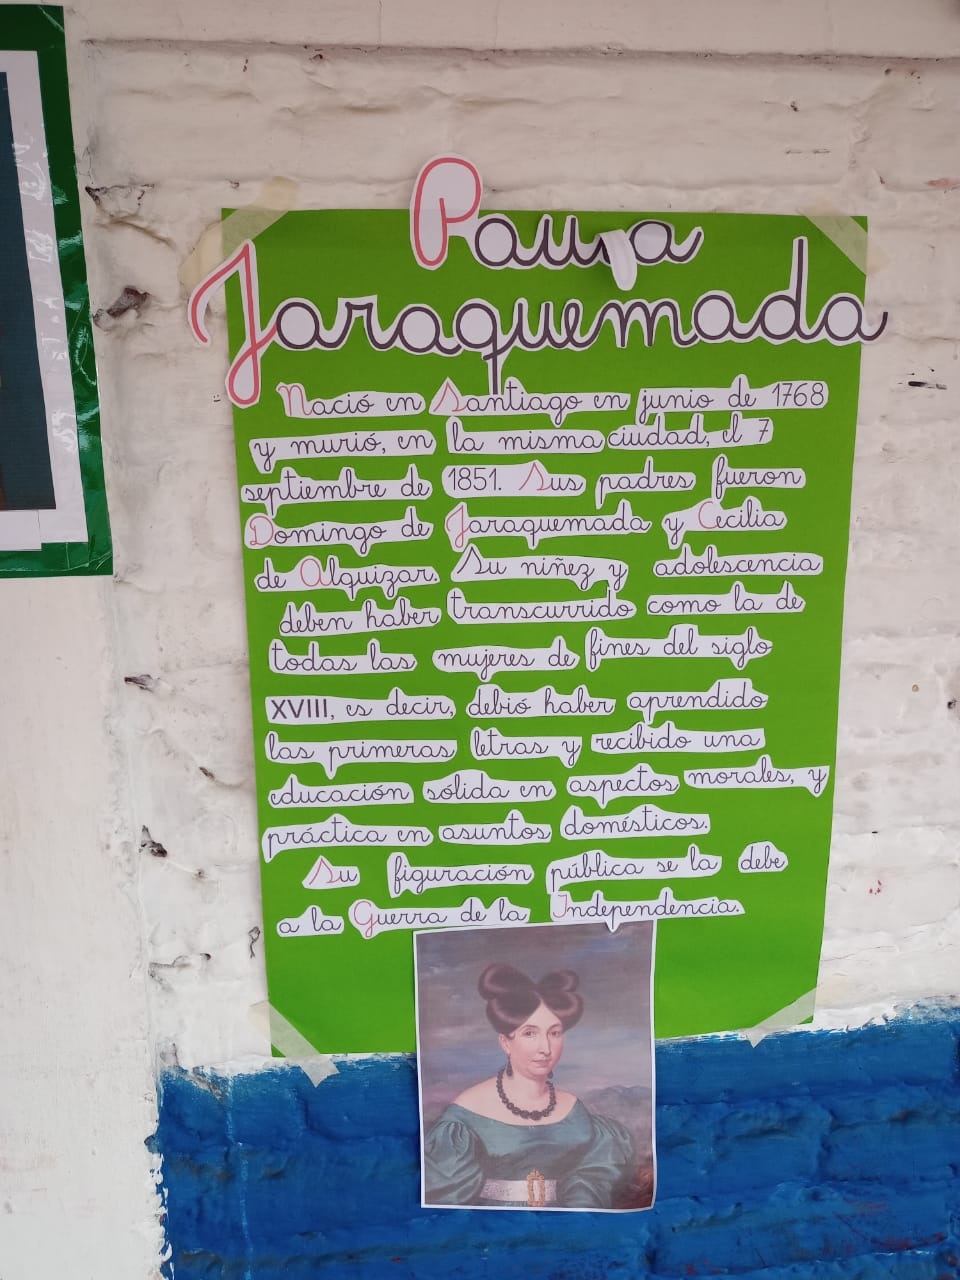 Paula
Jaraquemada
Nació en Santiago en junio de 1768
y murió, en la misma ciudad, el 7
septiembre de 1851. Sus padres fueron
Domingo de Jaraquemada y Cecilia
de Alquizar. Su niñez y adolescencia
deben haber transcurrido como la de
todas las mujeres de fines del siglo
XVIII, es decir, debió haber aprendido
las primeras letras y recibido una
educación sólida en aspectos morales, y
práctica en asuntos domésticos.
Su figuración pública se la debe
a la Guerra de la Independencia.